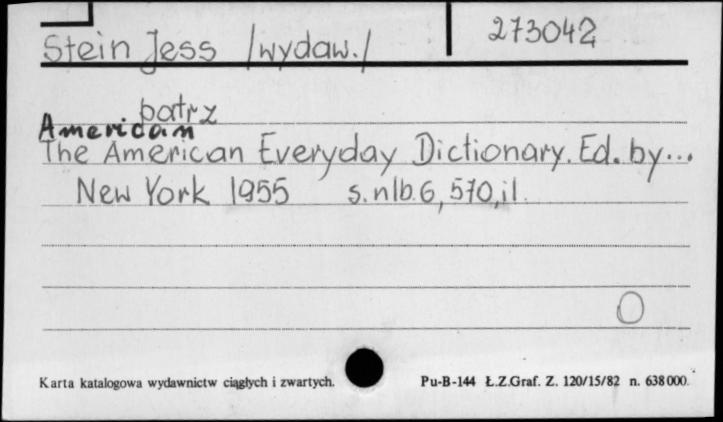 273042
Stein Jess /wydaw./
patrz
American
The American Everyday Dictionary. Ed. by...
New York 1955 s. nlb. 6, 570, il.
O
Karta katalogowa wydawnictw ciągłych i zwartych. Pu-B-144 Ł.Z.Graf. Z. 120/15/82 n. 638000.